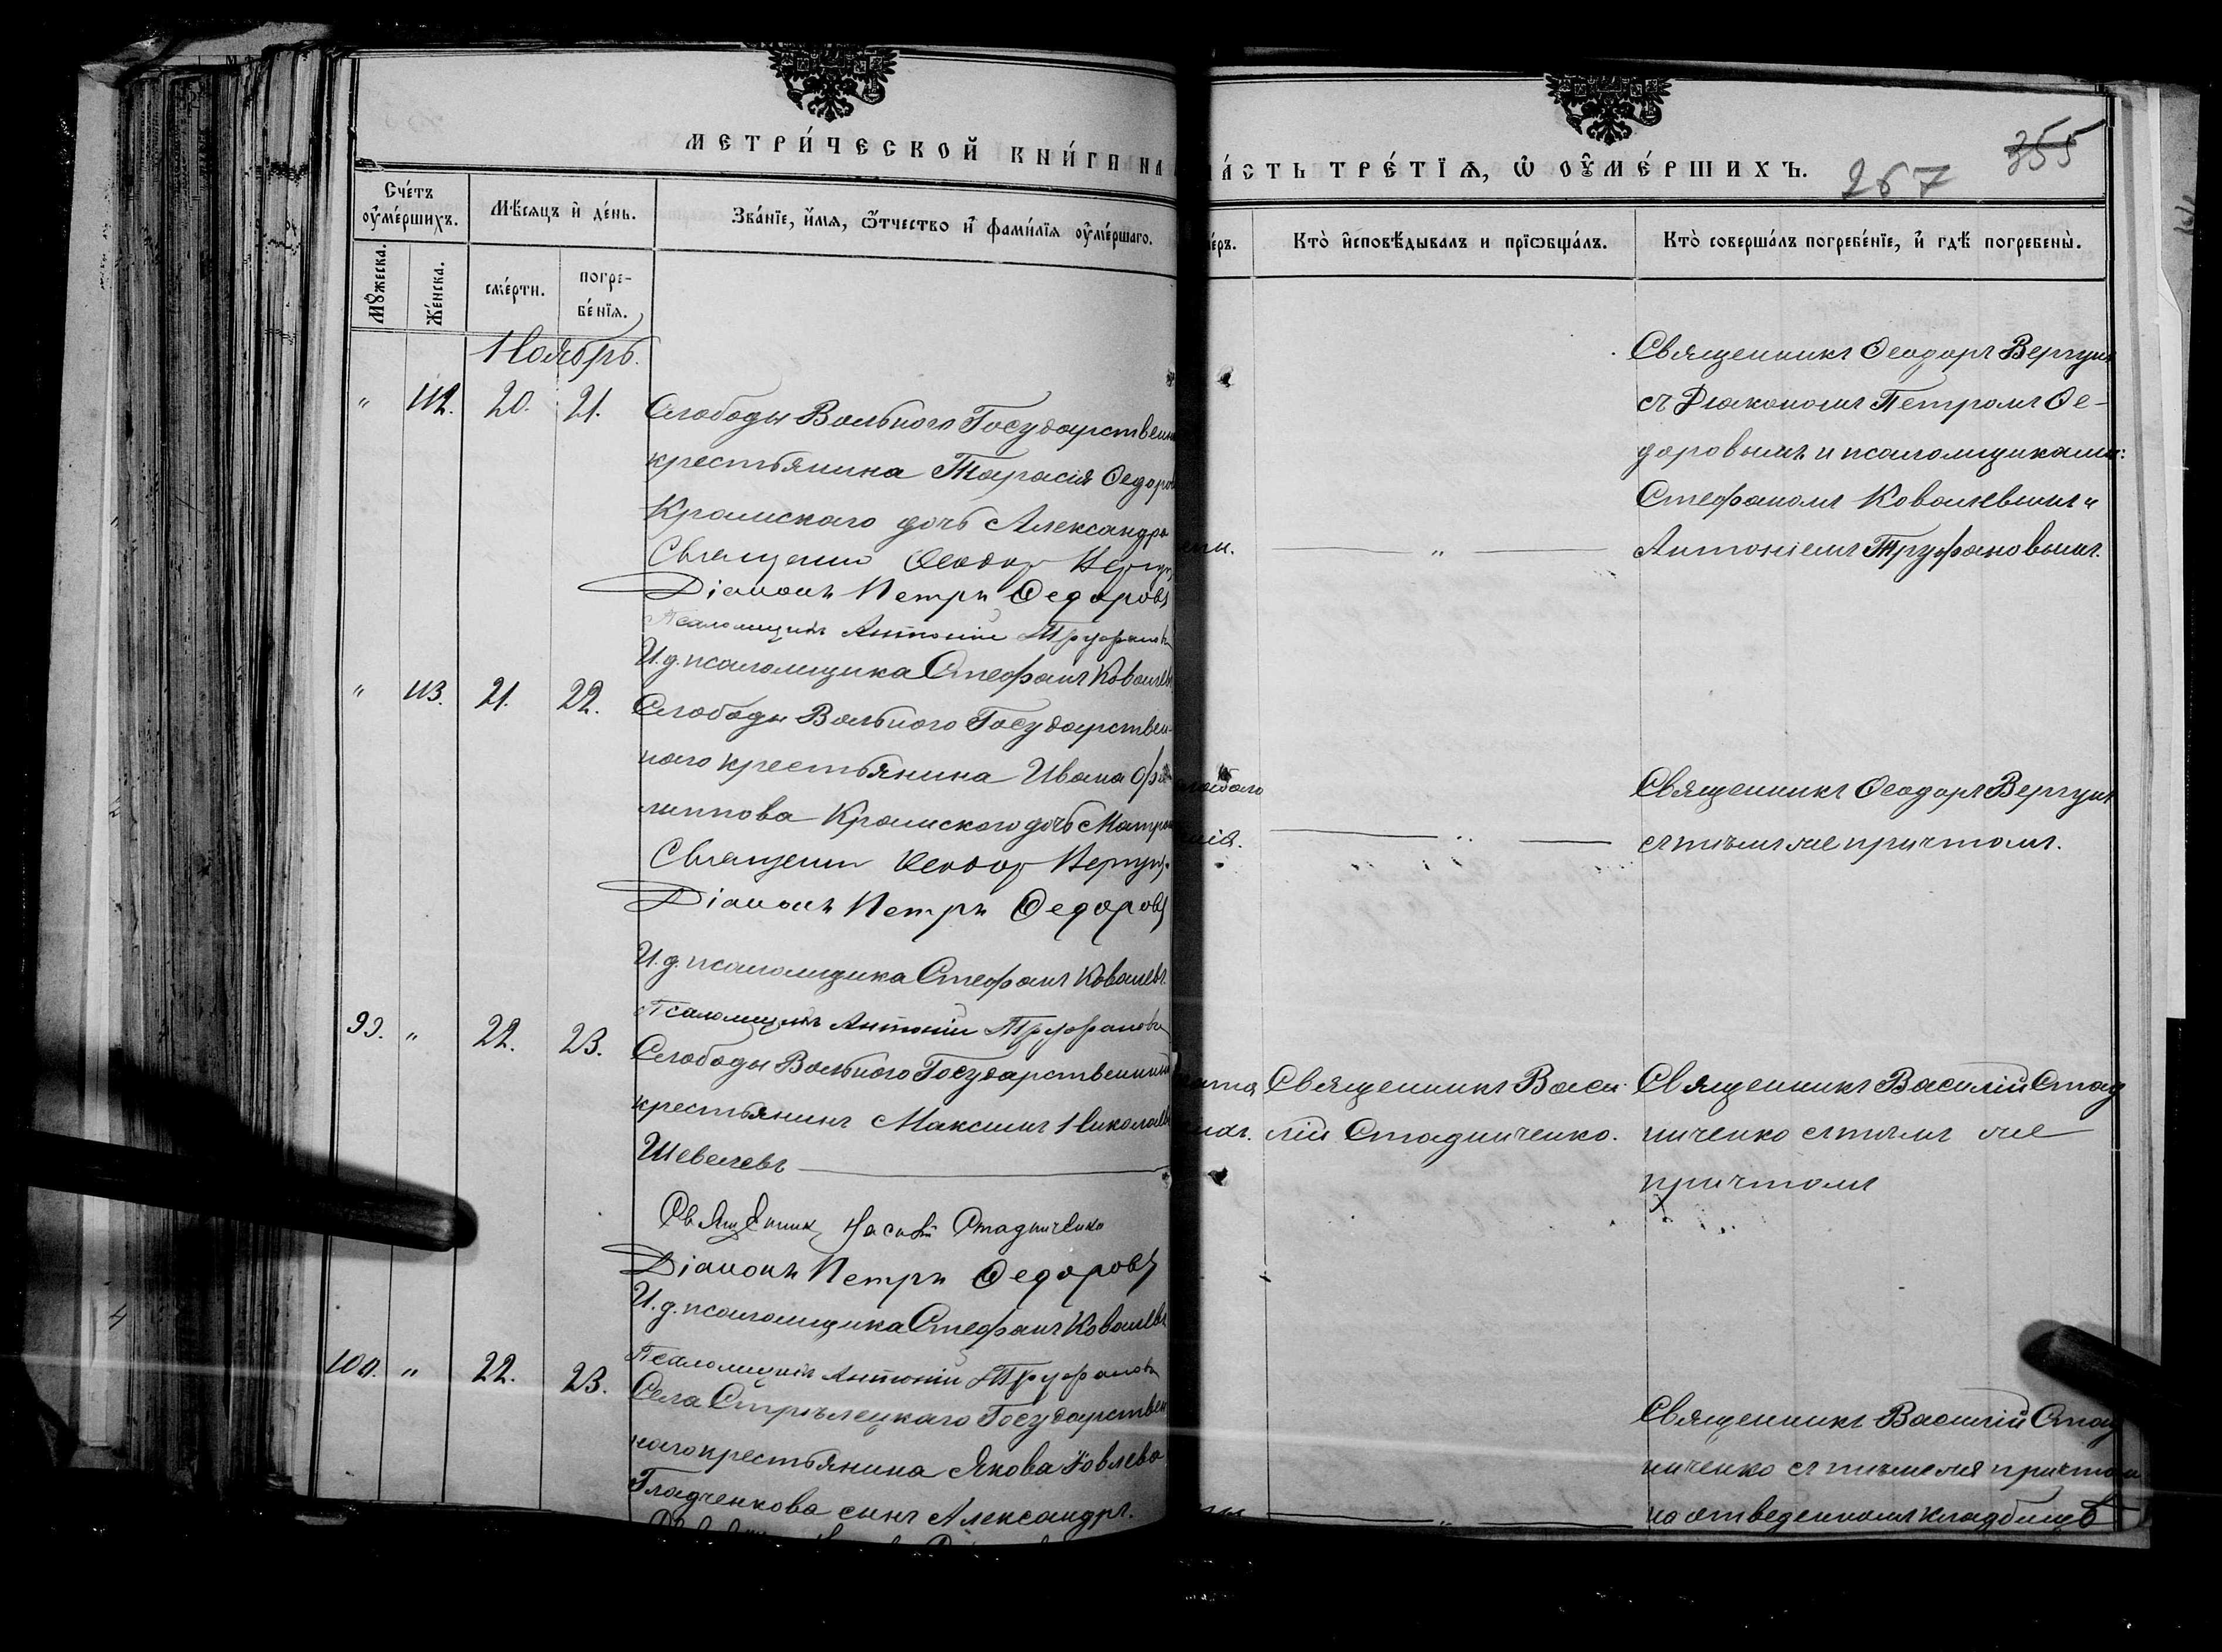 МЕТРИ́ЧЕСКОЙ КНИ́ГИ НА
ЧА́СТЬ ТРЕ́ТЇѦ, Ѡ ОУМЕ́РШИХЪ.
267
355
Сче́тъ оуме́ршихъ.
Мѣсяцъ и де́нь.
Зва́нїе, и́мя, ѻ́тчество и фами́лїя оуме́ршаго.
Кто̀ исповѣ́дывалъ и прїѡбща́лъ.
Кто̀ соверша́лъ погребе́нїе, и гдѣ погребены̀.
Мꙋ́жеска.
Же́нска.
сме́рти.
погре-
бе́нїя.
Ноябрь.
" 112. 20. 21.
Слободы Вольного Государственн
крестьянина Тарасія Ѳедоро
Крамского дочь Александра
Священник Ѳеодор Вергун
Діаконъ Петръ Ѳедоровъ
Псаломщикъ Антоній Труфановъ
И.д. псаломщика Стефанъ Ковалевъ
"
Священникъ Ѳеодоръ Вергунъ
съ Діакономъ Петромъ Ѳе-
доровымъ и псаломщиками:
Стефаномъ Ковалевымъ и
Антоніемъ Труфановымъ.
" 113. 21. 22.
Слободы Вольного Государствен-
ного крестьянина Ивана Фи
липпова Крамского дочь Матрон
Священник Ѳеодор Вергун
Діаконъ Петръ Ѳедоровъ
И.д. псаломщика Стефанъ Ковалевъ
Псаломщикъ Антоній Труфановъ
Священникъ Ѳеодоръ Вергунъ
съ тѣмъ же причтомъ.
99. " 22. 23.
Слободы Вольного Государственный
крестьянинъ Максимъ Николаевъ
Шевелевъ
Священникъ Василій Стадниченко
Діаконъ Петръ Ѳедоровъ
И.д. псаломщика Стефанъ Ковалевъ
Псаломщикъ Антоній Труфановъ
Священникъ Васи
лій Стадниченко.
Священникъ Василій Стад
ниченко съ тѣмъ же
причтомъ
100. " 22. 23.
Села Стрѣлецкаго Государствен
наго крестьянина Якова Іовлева
Гладченкова сынъ Александръ.
"
Священникъ Василій Стад
ниченко съ тѣмъ же причтом
на отведенномъ кладбищѣ